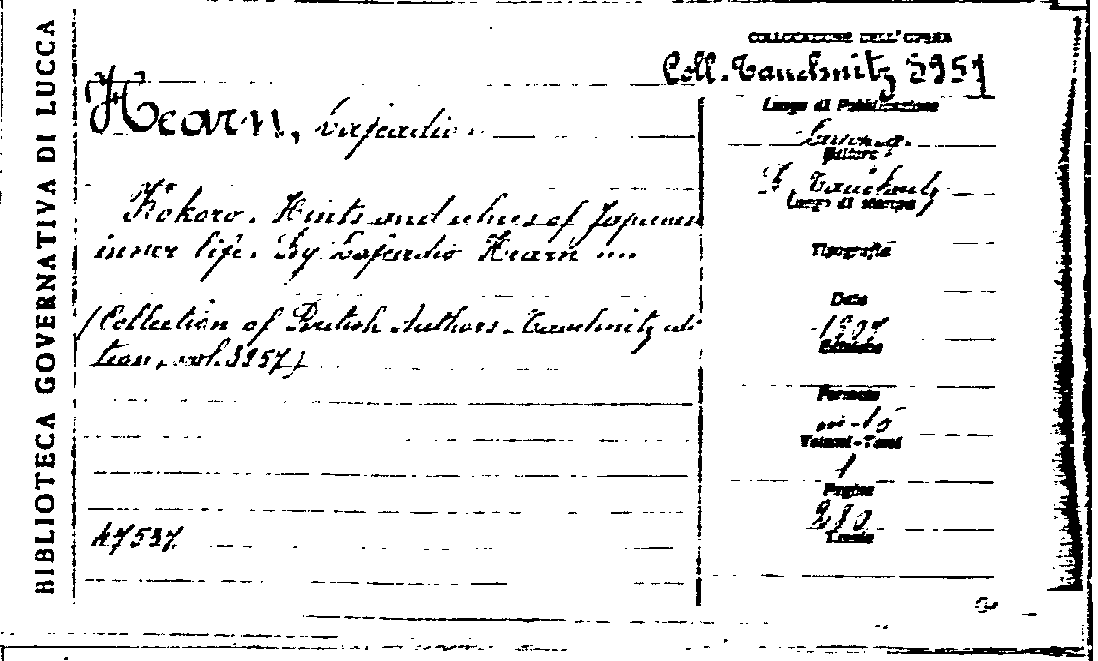 BIBLIOTECA GOVERNATIVA DI LUCCA
COLLOCAZIONE DELL'OPERA
Coll. Tauchnitz 3957
Hearn, Lafcadio.
Kokoro. Hints and echoes of Japanese
inner life. By Lafcadio Hearn ....
(Collection of British Authors - Tauchnitz edi
tion, vol. 3957)
47537
Luogo di Pubblicazione
Editore
B. Tauchnitz
Luogo di stampa
Tipografia
Data
1907
Edizione
Formato
in-16
Volumi - Tomi
1
Pagine
280
Tavole